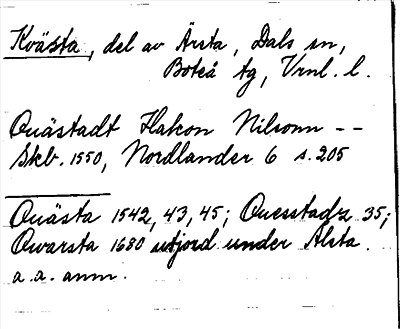 Kvästa, del av Ärsta, Dals sn,
Boteå tg, Vrnl. l.
Quästadt Hakon Nilsonn --
Skb. 1550, Nordlander 6 s. 205
Quästa 1542, 43, 45; Quesstadz 35;
Qwarsta 1680 utjord under Alsta.
a.a. anm.